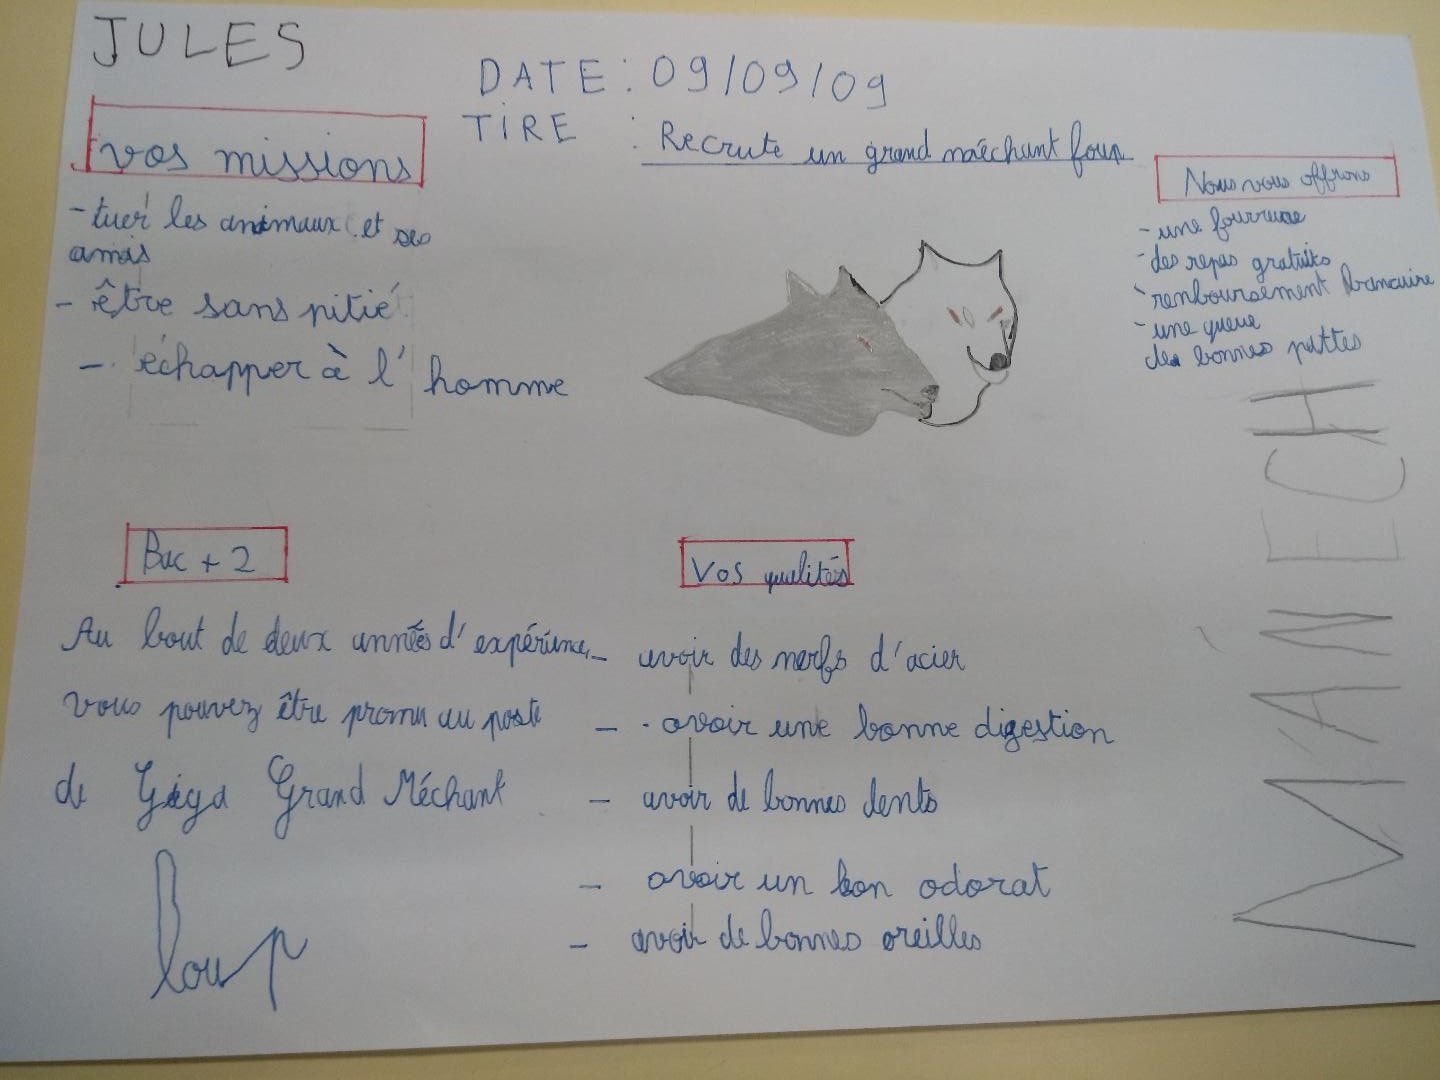 JULES
DATE : 09/09/09
TIRE : Recrute un grand méchant loup
vos missions
- tuer les animaux et ses
amis
- être sans pitié
- échapper à l'homme
Nous vous offrons
- une fourrure
- des repas gratuits
- renboursement bancaire
- une queue
des bonnes pattes
MANECH
Bac + 2
Au bout de deux années d'expérience,
vous pouvez être promu au poste
de Giga Grand Méchant
loup
Vos qualités
- avoir des nerfs d'acier
- avoir une bonne digestion
- avoir de bonnes dents
- avoir un bon odorat
- avoir de bonnes oreilles